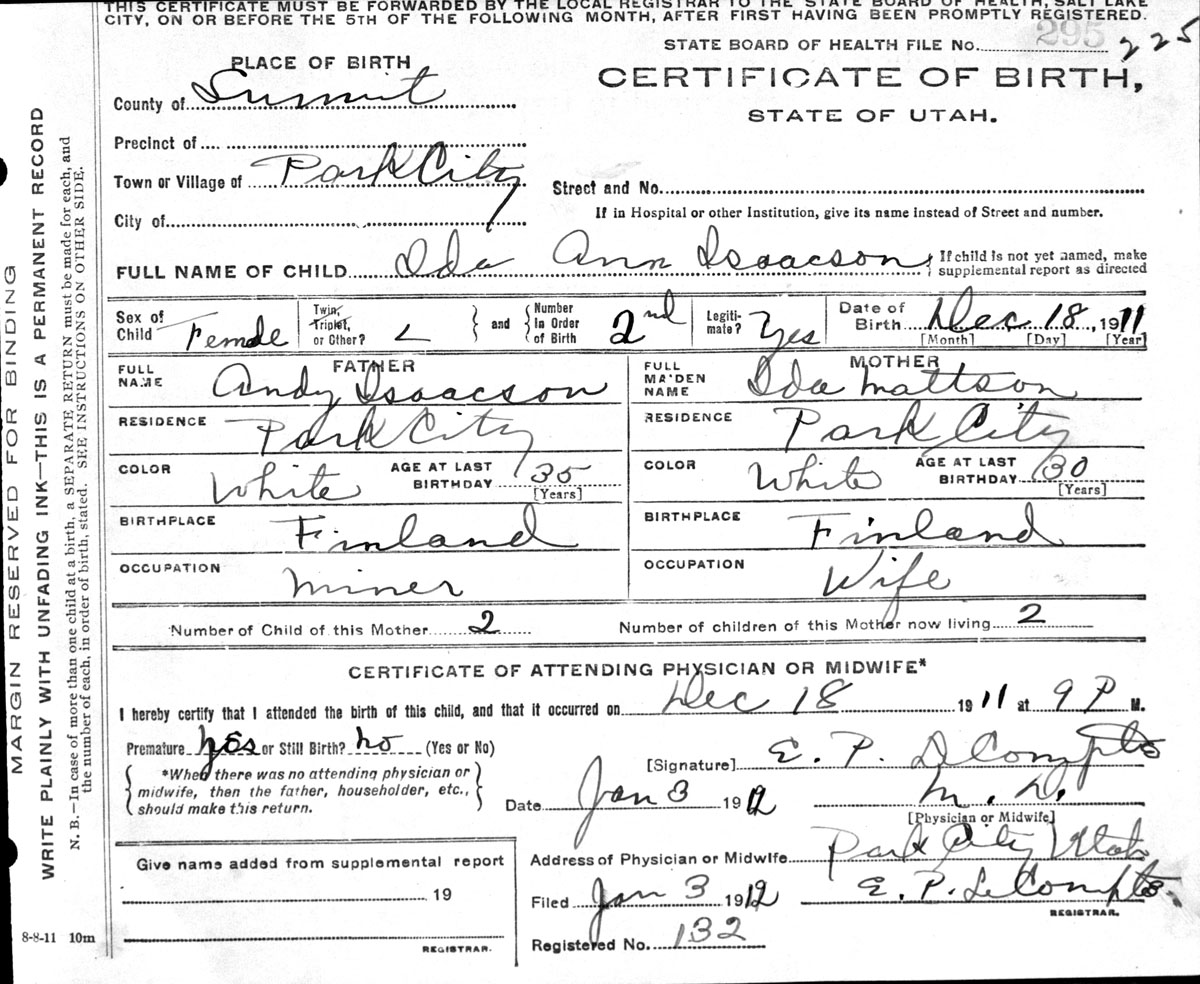 THIS CERTIFICATE MUST BE FORWARDED BY THE LOCAL REGISTRAR TO THE STATE BOARD OF HEALTH, SALT LAKE
CITY, ON OR BEFORE THE 5TH OF THE FOLLOWING MONTH, AFTER FIRST HAVING BEEN PROMPTLY REGISTERED.
STATE BOARD OF HEALTH FILE No. 295 225
PLACE OF BIRTH
CERTIFICATE OF BIRTH,
STATE OF UTAH.
County of Summit
Precinct of
Town or Village of Park City
Street and No.
City of
If in Hospital or other Institution, give its name instead of Street and number.
FULL NAME OF CHILD Ida Ann Isaacson { If child is not yet named, make
supplemental report as directed
Sex of Child Female
Twin, Triplet, or Other?
and Number in Order of Birth 2nd
Legitimate? Yes
Date of Birth Dec 18, 1911
[Month] [Day] [Year]
FATHER
FULL NAME Andy Isaacson
RESIDENCE Park City
COLOR White AGE AT LAST BIRTHDAY 35 [Years]
BIRTHPLACE Finland
OCCUPATION Miner
MOTHER
FULL MAIDEN NAME Ida Mattson
RESIDENCE Park City
COLOR White AGE AT LAST BIRTHDAY 30 [Years]
BIRTHPLACE Finland
OCCUPATION Wife
Number of Child of this Mother 2 Number of children of this Mother now living 2
CERTIFICATE OF ATTENDING PHYSICIAN OR MIDWIFE*
I hereby certify that I attended the birth of this child, and that it occurred on Dec 18 1911 at 9 P M.
Premature Yes or Still Birth? No (Yes or No)
*When there was no attending physician or
midwife, then the father, householder, etc.,
should make this return.
[Signature] E. P. LeCompte
Date Jan 3 1912 M. D.
[Physician or Midwife]
Address of Physician or Midwife Park City Utah
Filed Jan 3 1912 E. P. LeCompte
REGISTRAR.
Registered No. 132
Give name added from supplemental report
19
REGISTRAR.
8-8-11 10m
MARGIN RESERVED FOR BINDING
WRITE PLAINLY WITH UNFADING INK—THIS IS A PERMANENT RECORD
N. B.—In case of more than one child at a birth, a SEPARATE RETURN must be made for each, and
the number of each, in order of birth, stated. SEE INSTRUCTIONS ON OTHER SIDE.